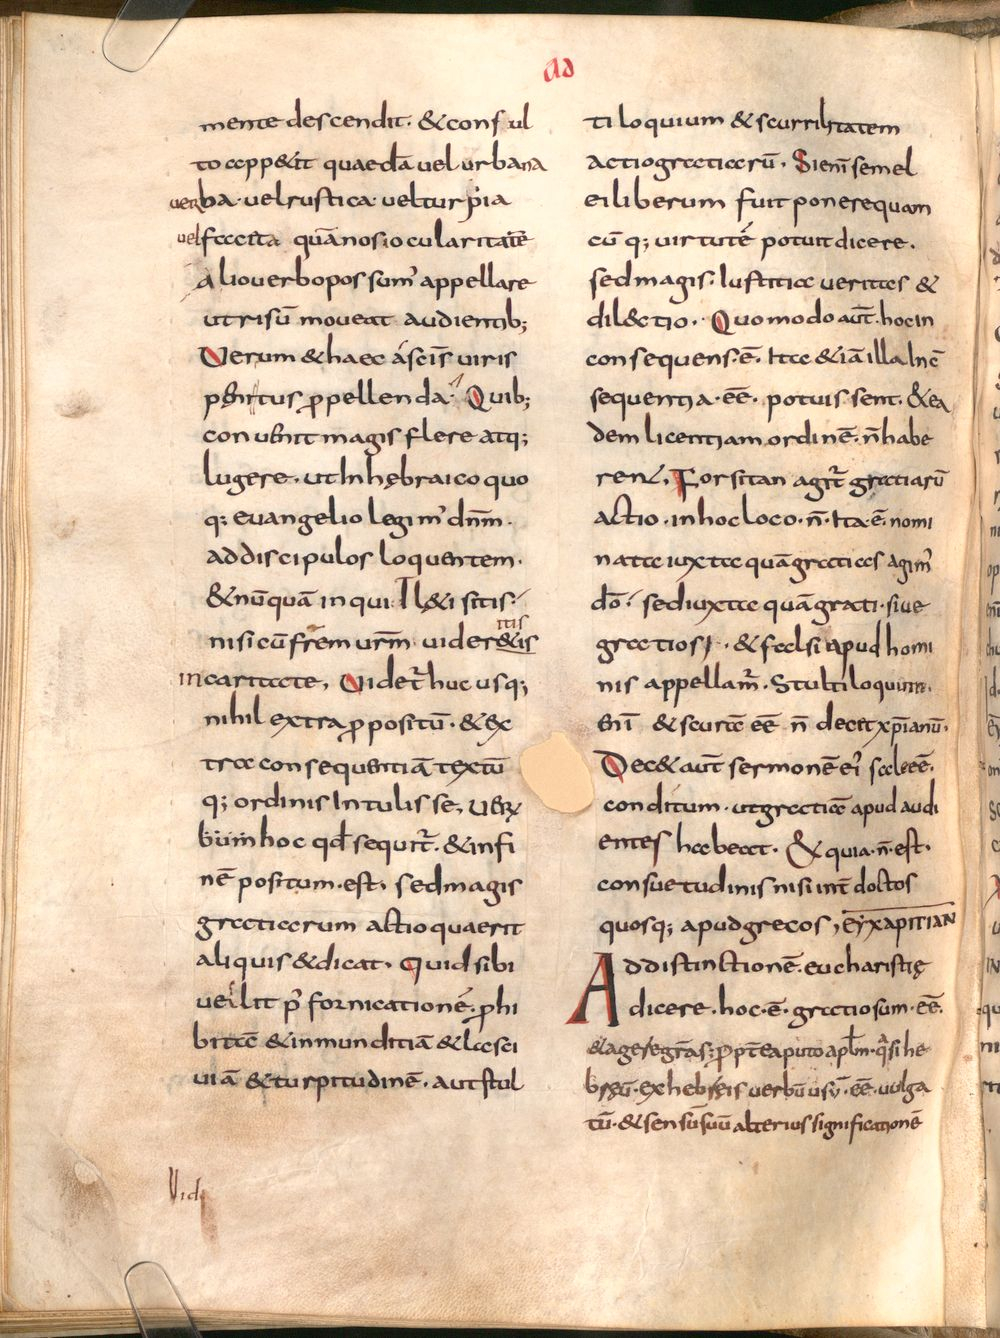 ad
mente descendit. & consul
to appetit quaedā vel urbana
verba. vel rustica. vel turpia
vel faceta quā nos iocularitatē
alio verbo possum' appellare
ut risū moveat audientib;
Verum & haec á scīs viris
penitus ꝓpellenda. Quib;
convenit magis flere atq;
lugere. ut In hębraico quo
q; evangelio legim' dn̄m.
ad discipulos loquentem.
& nūquā inqui. Il&i sitis.
nisi cū frēm vrm̄ vider&is
itis
in caritate, Videt̄ huc usq;
nihil extra ꝓpositū. & ex
tra consequentiā textū
q; ordinis Intulisse, ver
bum hoc qd̄ sequit̄. & infi
nē positum. est, sed magis
gratiarum actio quaerit
aliquis & dicat. Quid sibi
velit p' fornicationē. ꝓhi
bitā & inmunditiā & lasci
viā & turpitudinē. aut stul
Vid
tiloquium & scurrilitatem
actio gratiarū. Si enī semel
ei liberum fuit ponere quam
cū q; virtutē potuit dicere.
sed magis. Iustitia veritas &
dilectio. Quomodo aūt. hoc in
consequens. ē. Ita & iā illa Inc̄
sequentia. ēē. potuissent. & ea
dem licentiam ordinē. n̄ habe
ren̄. Forsitan agit̄ gratiarū
actio. in hoc loco. n̄. Ita. ē. nomi
nata iuxta quā gratias agim'
dō. sed iuxta quā grati. sive
gratiosi. & salsi apud homi
nis appellam̄. Stultiloquium.
enī & scurrā ēē n̄ decet xp̄ianū.
Dec& aūt sermonē eī salē ēē.
conditum. ut gratiā apud audi
entes habeat. & quia. n̄. est.
consuetudinis nisi int̄ doctos
quosq; apud grecos, ΕΥΧΑΡΙΤΙΑΝ
Ad distinctionē. eucharistię
dicere. hoc. ē. gratiosum. ēē.
& agere gr̄as; ꝓpt̄ea puto apl̄m. q̄si he
breū. ex hebreis verbū usū. ēē. vulga
tū. & sensū suū alterius significationē